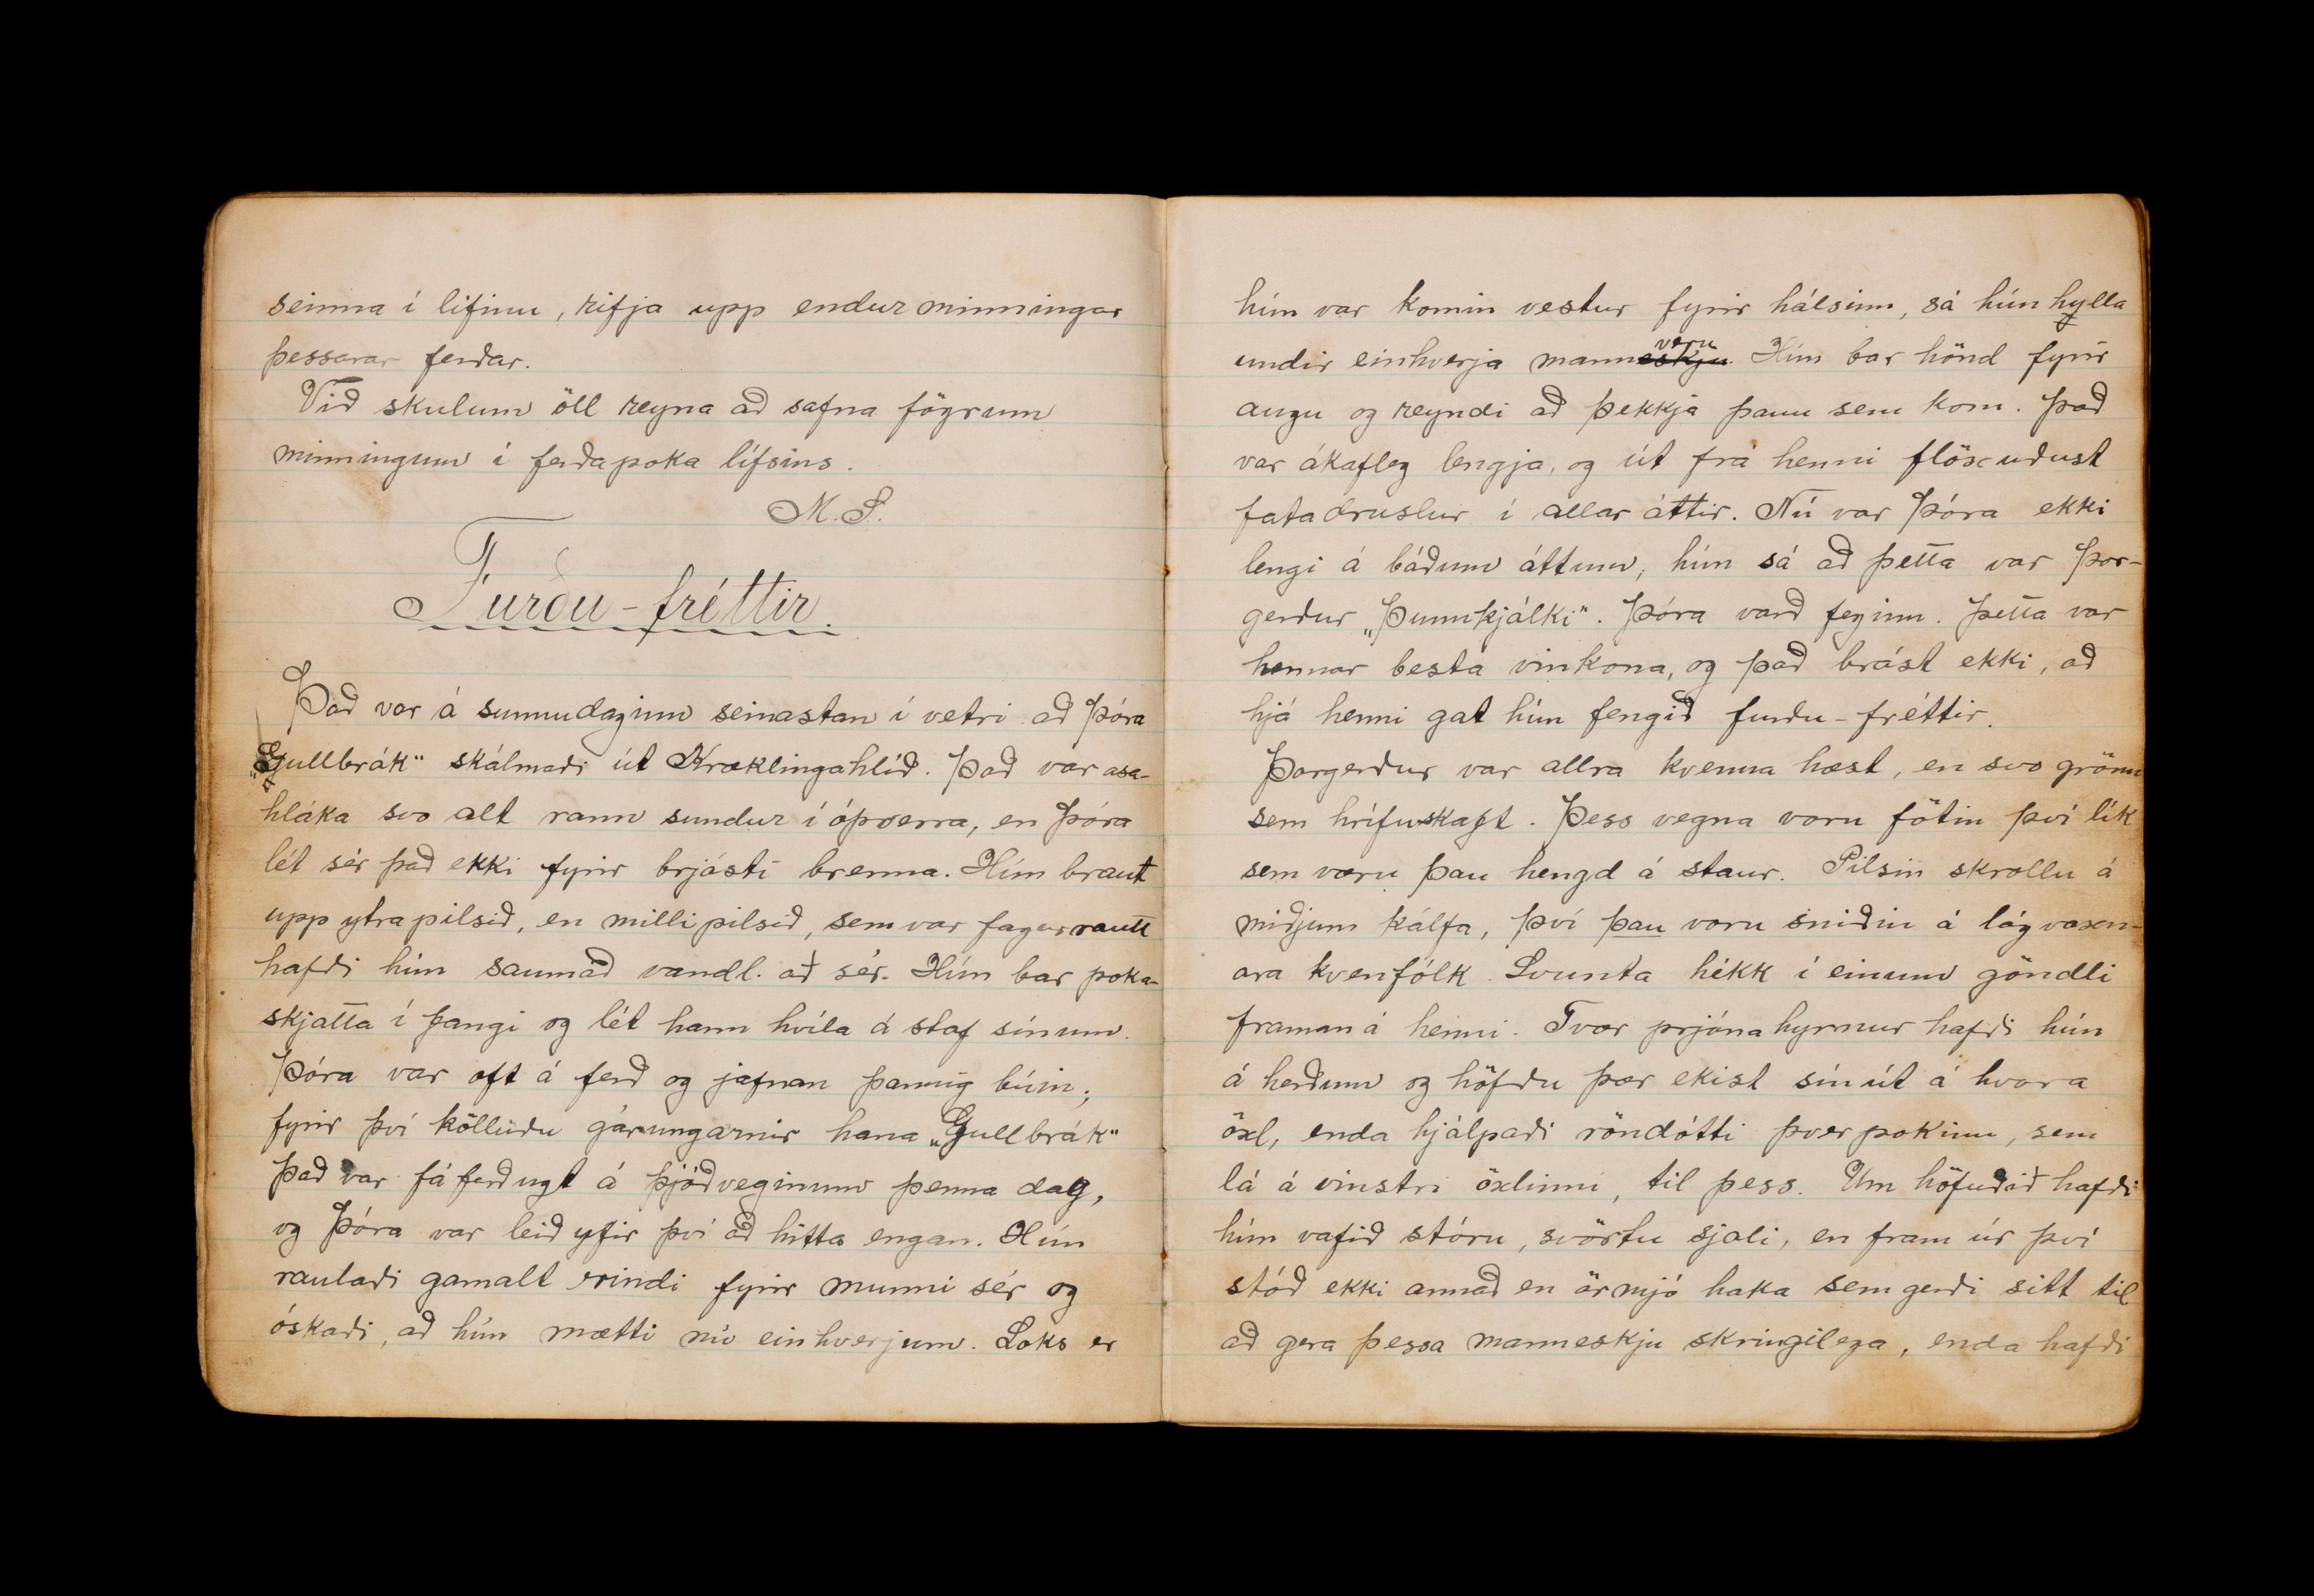 seinna í lífinu, rifja upp endurminningar
þessarar ferðar.
Við skulum öll reyna að safna fögrum
minningum í ferðapoka lífsins.
M.S.
Furðu-fréttir.
Það var á sunnudaginn seinastan í vetri að Þóra
„Gullbrák" skálmaði út Kræklingahlíð. Það var asa-
hláka svo alt rann sundur í ópverra, en Þóra
lét sér það ekki fyrir brjósti brenna. Hún braut
upp ytrapilsið, en millipilsið, sem var fagurrautt
hafði hún saumað vandl. að sér. Hún bar poka-
skjatta í fangi og lét hann hvíla á staf sínum.
Þóra var oft á ferð og jafnan þannig búin;
fyrir því kölluðu gárungarnir hana „Gullbrák"
Það var fáferðugt á þjóðveginum þenna dag,
og Þóra var leið yfir því að hitta engan. Hún
raulaði gamalt erindi fyrir munni sér og
óskaði, að hún mætti nú einhverjum. Loks er
hún var komin vestur fyrir hálsinn, sá hún hylla
undir einhverja manneskju veru. Hún bar hönd fyrir
augu og reyndi að þekkja þann sem kom. Það
var ákafleg lengja, og út frá henni flöxuðust
fatadruslur í allar áttir. Nú var Þóra ekki
lengi á báðum áttum, hún sá að þetta var Þor-
gerður „Þunnkjálki". Þóra varð feginn. Þetta var
hennar besta vinkona, og það brást ekki, að
hjá henni gat hún fengið furðu-fréttir.
Þorgerður var allra kvenna hæst, en svo grönn
sem hrífuskaft. Þess vegna voru fötin því lík
sem væru þau hengd á staur. Pilsin skrollu á
miðjum kálfa, því þau voru sniðin á lágvaxn-
ara kvenfólk. Svunta hékk í einum göndli
framan á henni. Tvær prjónahyrnur hafði hún
á herðum og höfðu þær ekist sín út á hvora
öxl, enda hjálpaði röndótti þverpokinn, sem
lá á vinstri öxlinni, til þess. Um höfuðið hafði
hún vafið stóru, svörtu sjali, en fram úr því
stóð ekki annað en örmjó haka sem gerði sitt til
að gera þessa manneskju skringilega, enda hafði